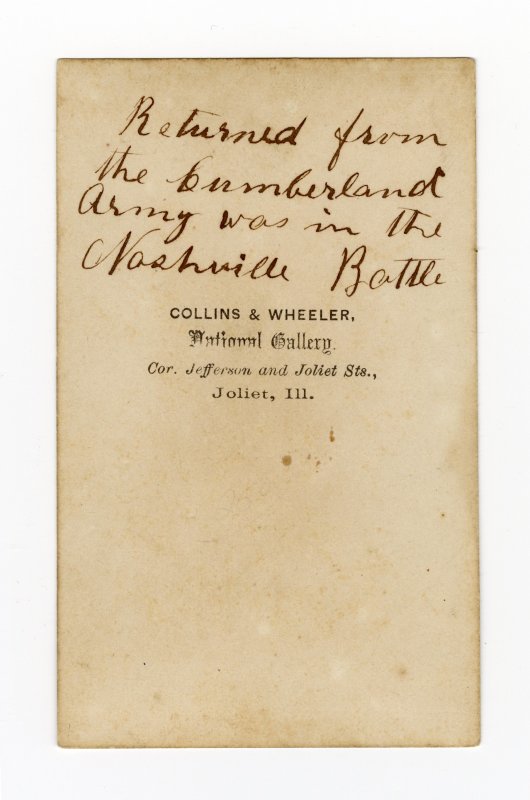 Returned from
the Cumberland
Army was in the
Nashville Battle
COLLINS & WHEELER,
National Gallery.
Cor. Jefferson and Joliet Sts.,
Joliet, Ill.